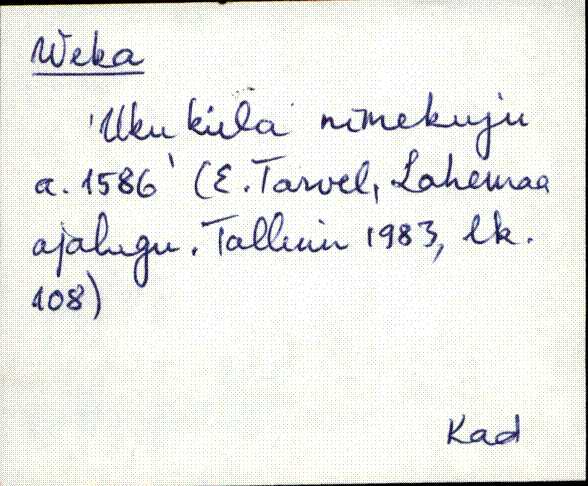 Weka
'Uku küla nimekuju
a. 1586' (E. Tarvel, Lahemaa
ajalugu. Tallinn 1983, lk.
108)
Kad